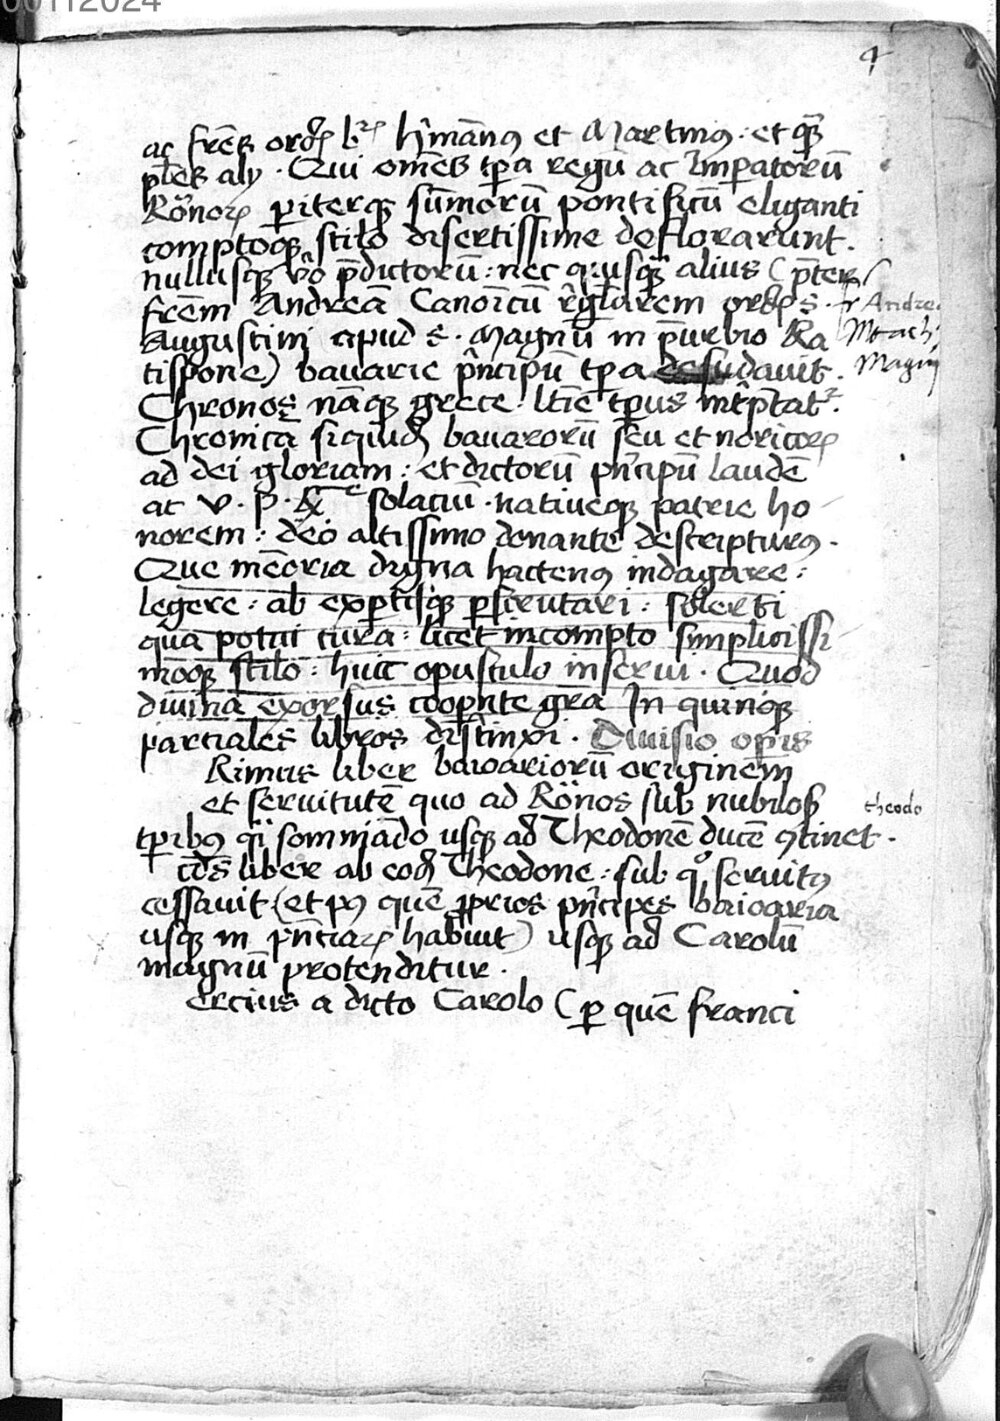 00112024
4
ac fr̄es ord̄ Hr̄mānꝰ et Martinꝰ : et q̄ꝫ
pl̄es alij · Qui om̄es tp̄a regū ac Imꝑatorū
Rōnoꝝ ꝑiterqꝫ sūmorū pontificū eliganti
comptoqꝫ stilo disertissime deflorarunt .
nullusqꝫ v̄o p̄dictorū : nec q̇usqꝫ alius ( p̄ter
frēm Andreā Canōicū rēglārem ord̄is s . fr Andre
Augustini apud s . Magnū in p̄urbio Ra
Magnū
tispone ) bavarie p̄ncipū tp̄a desudavit .
Chronos nāqꝫ grece : lat̄ie tp̄us int̄p̄tat᷑ .
Chronicā siquid̄ bavarorū seu et noricoꝝ
ad dei gloriam : et dictorū pn̄cipū laudē
ac v . p . solaciū · natiueqꝫ patrie ho
norem : deo altissimo donante descripturꝰ .
Que mēoria digna hactenꝰ indagare :
legere : ab exꝑtisqꝫ ꝑscrutari : solerti
qua potui cura : licet incompto simplicissi
moqꝫ stilo : huic opusculo inserui . Quod
divina exorsus cooꝑnte gr̄a In quinqꝫ
parciales libros distinxi . Divisio oꝑis
Rimus liber baioariorū originem
et servitutē quo ad Rōnos sub nubilos theodo
tp̄ibꝰ q̄i somniādo usqꝫ ad Theodonē ducē ꝯtinet .
cd̄s liber ab eod̄ Theodone : sub q̊ servitꝰ
cessavit ( et pꝰ quē ꝓprios pn̄cipes baioaria
usqꝫ in p̄nciaꝝ habuit ) usqꝫ ad Carolū
magnū protenditur .
ercius a dicto Carolo ( ꝑ quē franci